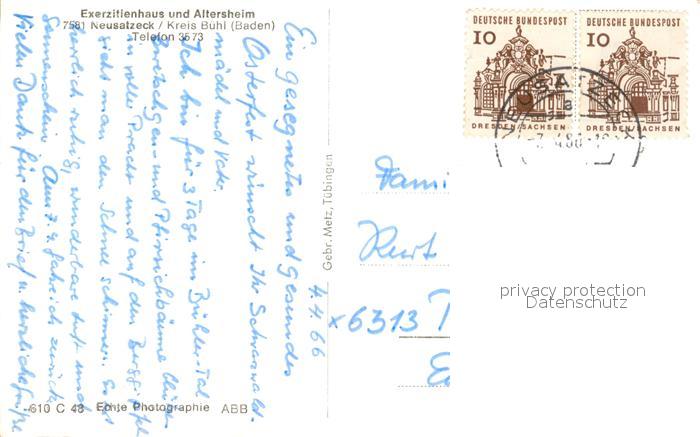 Exerzitienhaus und Altersheim
7581 Neusatzeck / Kreis Bühl (Baden)
Telefon 3573
Ein gesegnetes und gesundes
Osterfest wünscht Ihr Schwarzwald-
mädel und Vater.
Ich bin für 3 Tage im Bühler-Tal
Zwetschgen- und Pfirsichbäume blühen
in voller Pracht und auf den Berggipfel
sieht man den Schnee schimmern. Es ist
herrlich ruhig, wunderbare Luft und
Sonnenschein. Am 7.4. fahre ich zurück
Vielen Dank für den Brief u. herzliche Grüße
4.4.66
610 C 48 Echte Photographie ABB
Gebr. Metz, Tübingen
DEUTSCHE BUNDESPOST
10
DRESDEN/SACHSEN
DEUTSCHE BUNDESPOST
10
DRESDEN/SACHSEN
NEUSATZECK
a
Fami
Kurt
x6313
privacy protection
Datenschutz